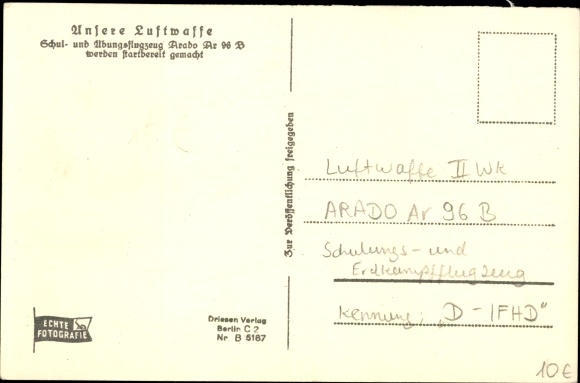 Unsere Luftwaffe
Schul- und Übungsflugzeug Arado Ar 96 B
werden startbereit gemacht
Zur Veröffentlichung freigegeben
Luftwaffe II WK
ARADO Ar 96 B
Schulungs- und
Erdkampfflugzeug
Kennung: „D-IFHD"
ECHTE
FOTOGRAFIE
Driesen Verlag
Berlin C 2
Nr B 5187
10€